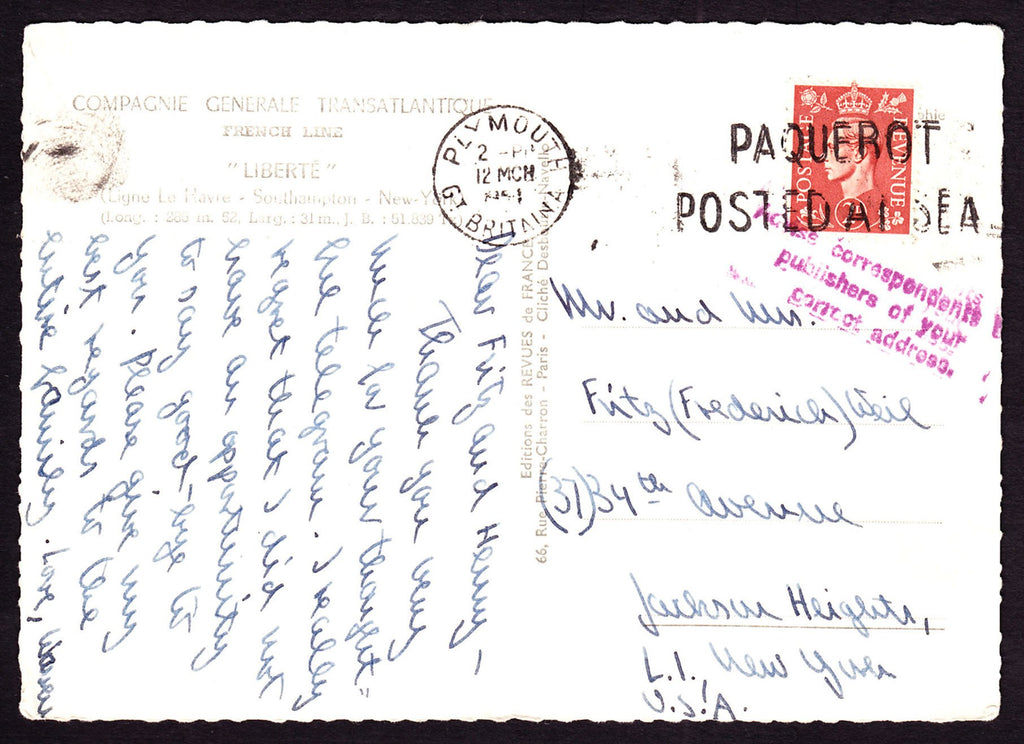 COMPAGNIE GENERALE TRANSATLANTIQUE
FRENCH LINE
"LIBERTÉ"
(Ligne Le Havre - Southampton - New-Yo
(Long. : 285 m. 52, Larg. : 31 m., J. B. : 51.839
PLYMOUTH
2 - PM
12 MCH
GT BRITAIN
PAQUEBOT
POSTED AT SEA
POSTAGE REVENUE
phie
Advise correspondents
publishers of your
correct address.
Editions des REVUES de FRANCE
66, Rue Pierre-Charron - Paris - Cliché Desboutin Navello
Dear Fritz and Henny -
Thank you very
much for your thought-
ful telegram. I really
regret that I did not
have an opportunity
to say good-bye to
you. Please give my
best regards to the
entire family. Love,
Mr. and Mrs.
Fritz (Frederich) Weil
(37)34th Avenue
Jackson Heights,
L.I., New York
U.S.A.